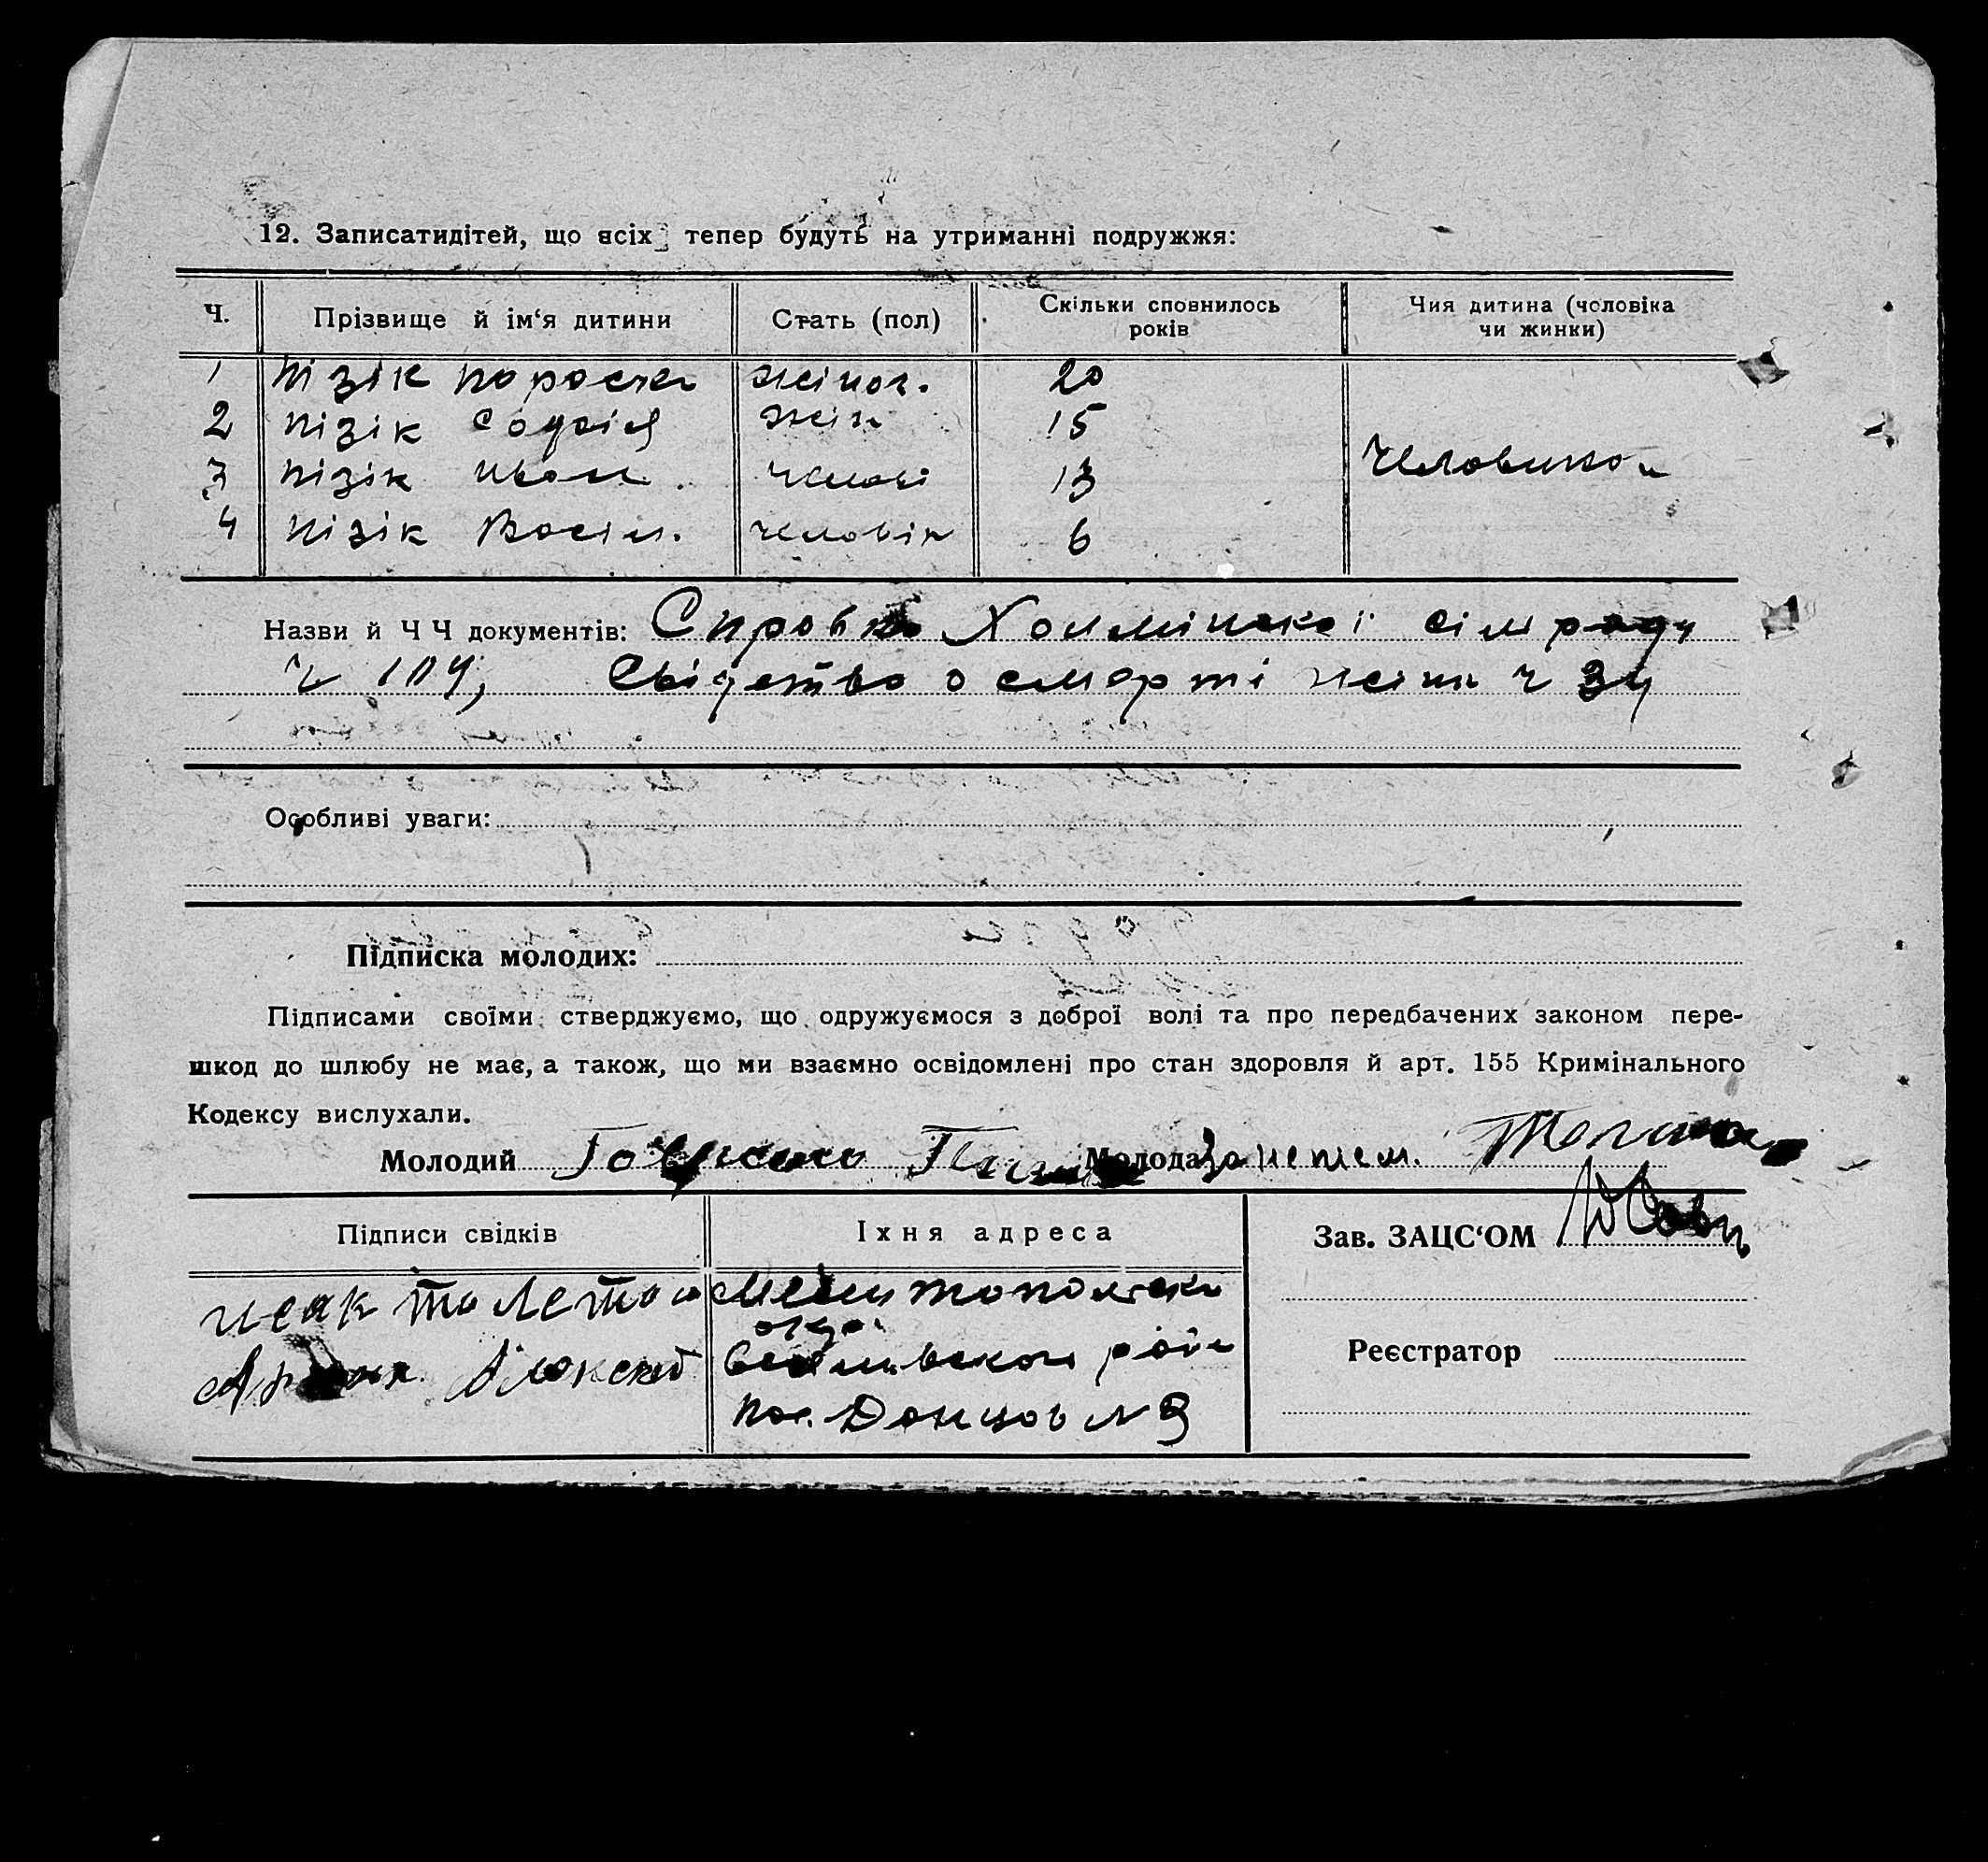 12. Записатидітей, що всіх тепер будуть на утриманні подружжя:
Ч. Прізвище й ім‘я дитини Стать (пол) Скільки сповнилось років Чия дитина (чоловіка чи жинки)
1 Пізік Пораска жіноч. 20
2 Пізік Софія жін 15
3 Пізік Иван. 13 Человика
4 Пізік Васіл. человік 6
Назви й Ч Ч документів: Справка сілради
ч 104, Свідотство о смерті жіни ч 34
Особливі уваги:
Підписка молодих:
Підписами своїми стверджуємо, що одружуємося з доброї волі та про передбачених законом пере-
шкод до шлюбу не має, а також, що ми взаємно освідомлені про стан здоровля й арт. 155 Кримінального
Кодексу вислухали.
Молодий Молода
Підписи свідків Їхня адреса Зав. ЗАЦС‘ОМ
Исак Мелитопольска
окр.
район
Реєстратор
пос. Донцов № 3